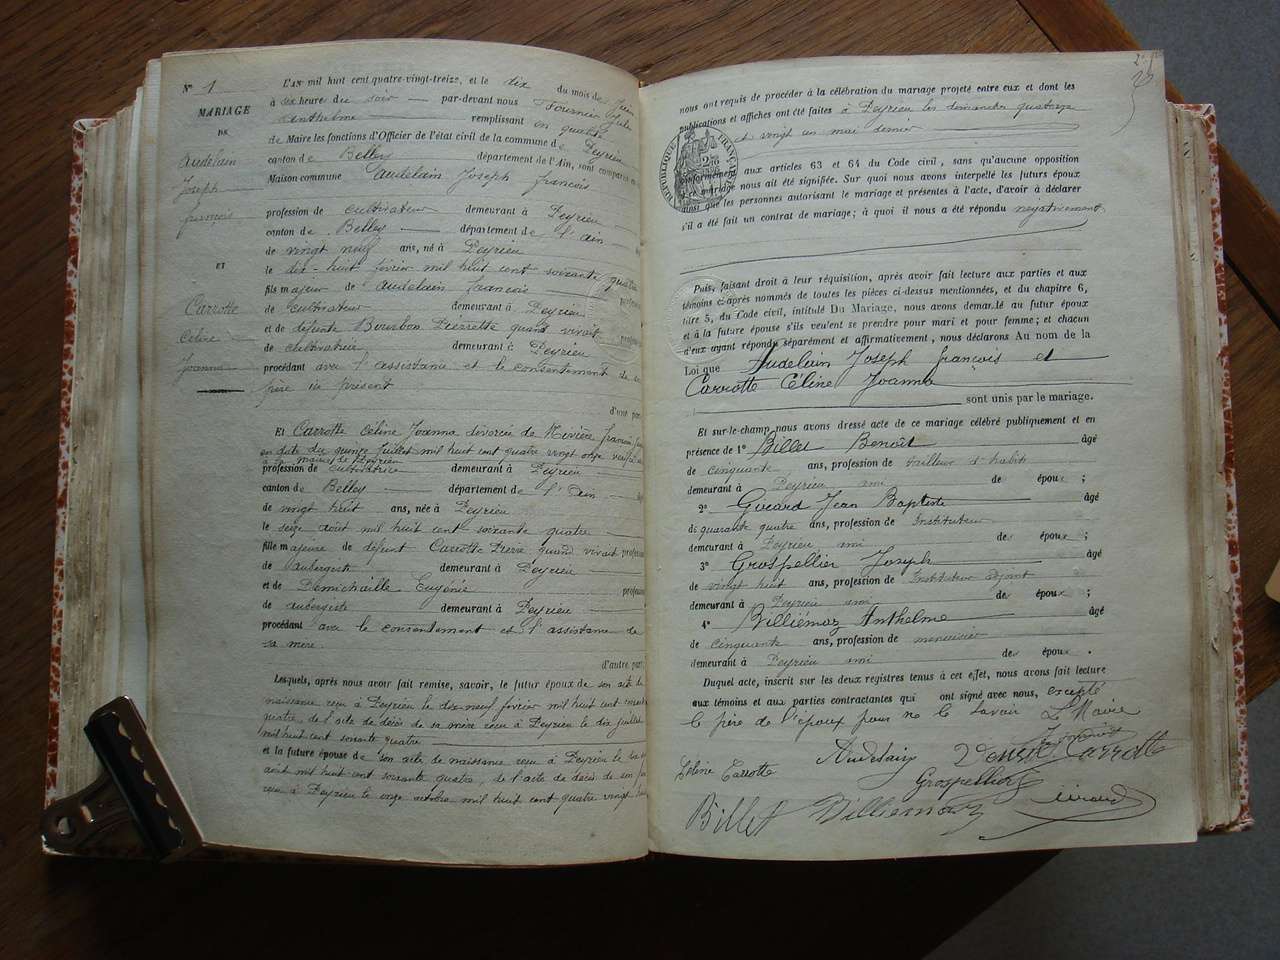 Nº 1
MARIAGE
DE
Audelain
Joseph
françois
ET
Carrotte
Céline
Joanna
L'AN mil huit cent quatre-vingt-treize, et le dix du mois de Juin
à six heure du soir par-devant nous Fournier
Anthelme remplissant en qualité
de Maire les fonctions d'Officier de l'état civil de la commune de Peyrieu
canton de Belley département de l'Ain, sont comparus en
Maison commune Audelain Joseph François
profession de cultivateur demeurant à Peyrieu
canton de Belley département de l'ain
de vingt neuf ans, né à Peyrieu
le dix-huit février mil huit cent soixante quatre
fils majeur de Audelain François
de cultivateur demeurant à Peyrieu
et de défunte Bourbon Pierrette quand vivait
de cultivatrice demeurant à Peyrieu
procédant avec l'assistance et le consentement de son
père ici présent
d'une part
Et Carrotte Céline Joanna divorcée de Rivière françois
en date du quinze juillet mil huit cent quatre vingt onze
à la mairie de Peyrieu
profession de cultivatrice demeurant à Peyrieu
canton de Belley département de l'Ain
de vingt huit ans, née à Peyrieu
le seize août mil huit cent soixante quatre
fille majeure de défunt Carrotte Pierre quand vivait profession
de aubergiste demeurant à Peyrieu
et de Demichaille Eugénie profession
de aubergiste demeurant à Peyrieu
procédant avec le consentement et l'assistance de
sa mère.
d'autre part
Lesquels, après nous avoir fait remise, savoir, le futur époux de son acte de
naissance reçu à Peyrieu le dix neuf février mil huit cent soixante
quatre, de l'acte de décès de sa mère reçu à Peyrieu le dix juillet
mil huit cent soixante quatre
et la future épouse de son acte de naissance reçu à Peyrieu le
août mil huit cent soixante quatre, de l'acte de décès de son
reçu à Peyrieu le onze octobre mil huit cent quatre vingt
nous ont requis de procéder à la célébration du mariage projeté entre eux et dont les
publications et affiches ont été faites à Peyrieu les dimanches quatorze
et vingt un mai dernier
RÉPUBLIQUE FRANÇAISE
conformément aux articles 63 et 64 du Code civil, sans qu'aucune opposition
à ce mariage nous ait été signifiée. Sur quoi nous avons interpellé les futurs époux
ainsi que les personnes autorisant le mariage et présentes à l'acte, d'avoir à déclarer
s'il a été fait un contrat de mariage; à quoi il nous a été répondu négativement
Puis, faisant droit à leur réquisition, après avoir fait lecture aux parties et aux
témoins ci-après nommés de toutes les pièces ci-dessus mentionnées, et du chapitre 6,
titre 5, du Code civil, intitulé Du Mariage, nous avons demandé au futur époux
et à la future épouse s'ils veulent se prendre pour mari et pour femme; et chacun
d'eux ayant répondu séparément et affirmativement, nous déclarons Au nom de la
Loi que Audelain Joseph françois et
Carrotte Céline Joanna
sont unis par le mariage.
Et sur-le-champ nous avons dressé acte de ce mariage célébré publiquement et en
présence de 1º Billet Benoît âgé
de cinquante ans, profession de tailleur d'habits
demeurant à Peyrieu ami des époux;
2º Girard Jean Baptiste âgé
de quarante quatre ans, profession de Instituteur
demeurant à Peyrieu ami des époux;
3º Grospellier Joseph âgé
de vingt huit ans, profession de Instituteur adjoint
demeurant à Peyrieu ami des époux;
4º Billiémaz Anthelme âgé
de cinquante ans, profession de menuisier
demeurant à Peyrieu ami des époux.
Duquel acte, inscrit sur les deux registres tenus à cet effet, nous avons fait lecture
aux témoins et aux parties contractantes qui ont signé avec nous, excepté
le père de l'époux pour ne le savoir Le Maire
Céline Carrotte Audelain Veuve Carrotte
Grospellier
Billet Billiemaz Girard